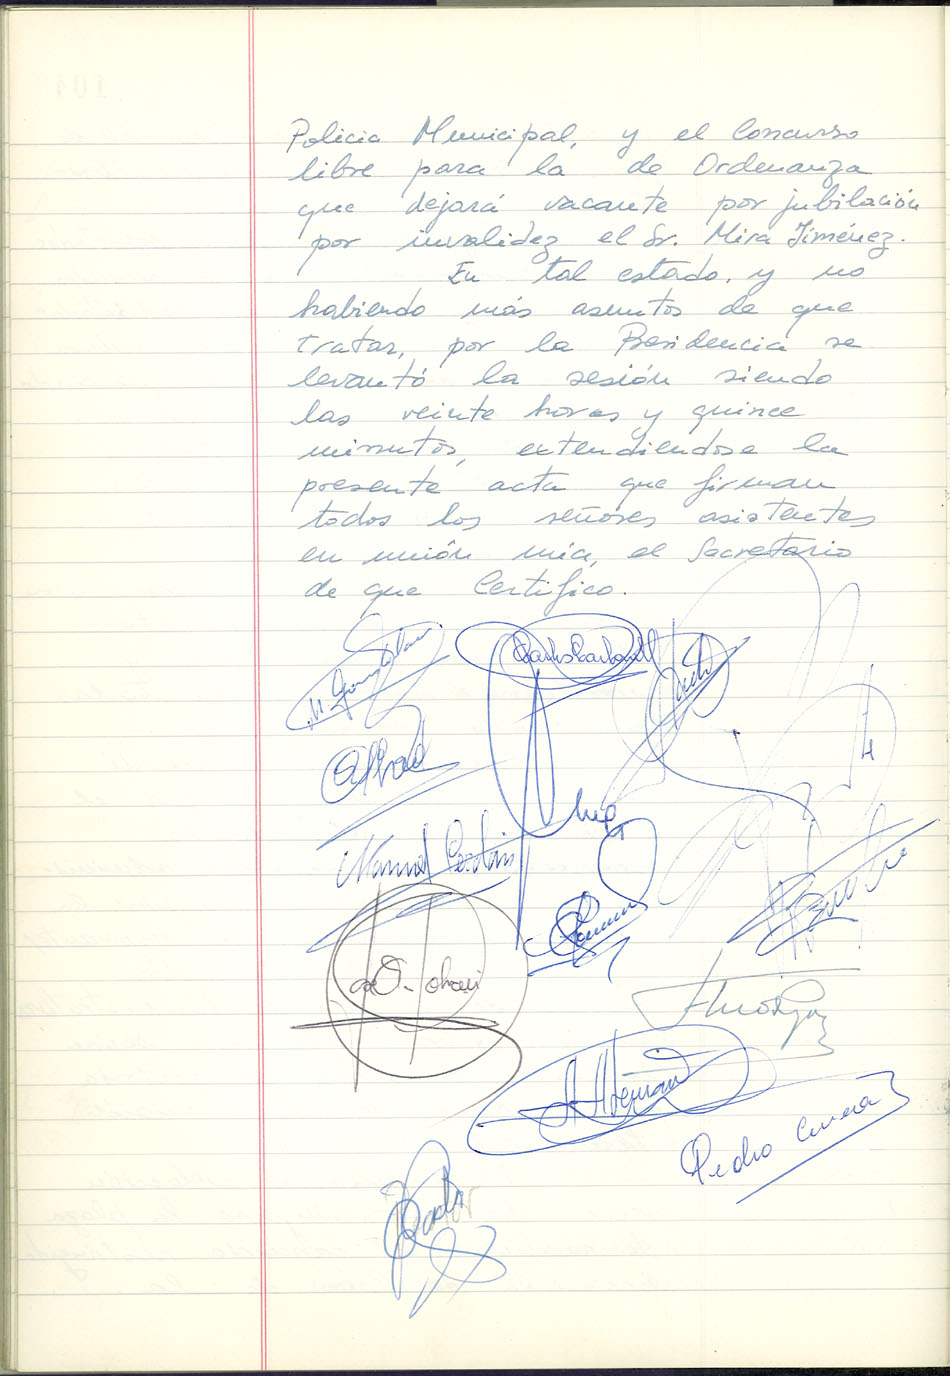 Policia Municipal, y el Concurso
libre para la de Ordenanza
que dejará vacante por jubilación
por invalidez el Sr. Mira Jiménez.
En tal estado, y no
habiendo más asuntos de que
tratar, por la Presidencia se
levantó la sesión siendo
las veinte horas y quince
minutos, extendiendose la
presente acta que firman
todos los señores asistentes
en unión mía, el Secretario
de que Certifico.
Carlos Carbonell
Manuel Cerdán
Pedro